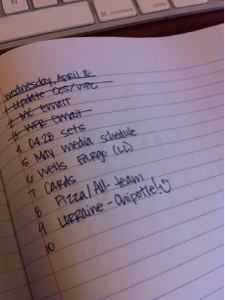 Wednesday, April
1 Update OOS/
2 email
3 email
4 04.28 sets
5 May media schedule
6 Wells Fargo (LL)
7 Cards
8 Pizza/All-team
9 Lorraine - Chipotle!
10